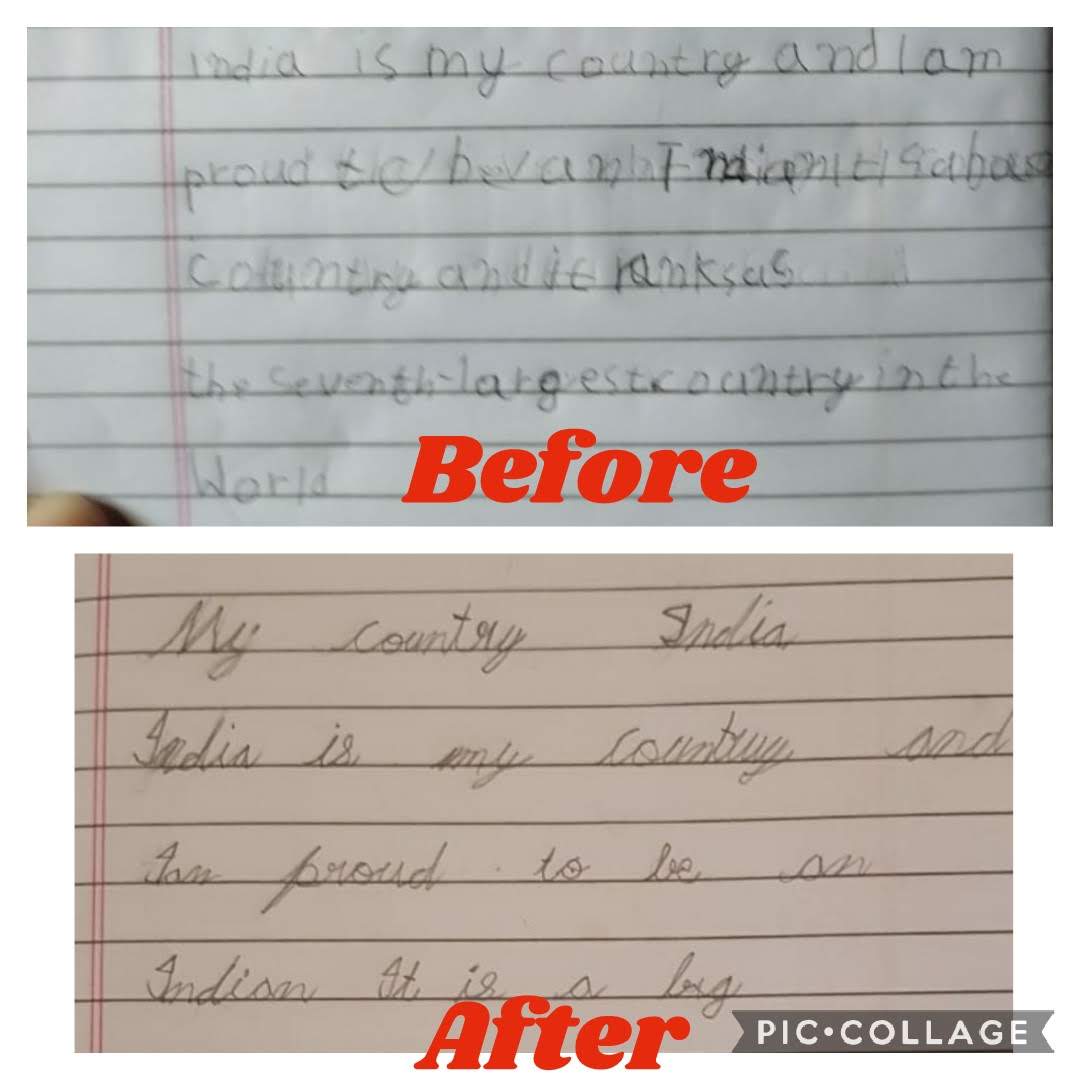 india is my country and I am
proud to be an Indian it is a
country and it ranks as
the seventh-largest country in the
World
Before
My country India
India is my country and
I am proud to be an
Indian It is a big
After
PIC•COLLAGE